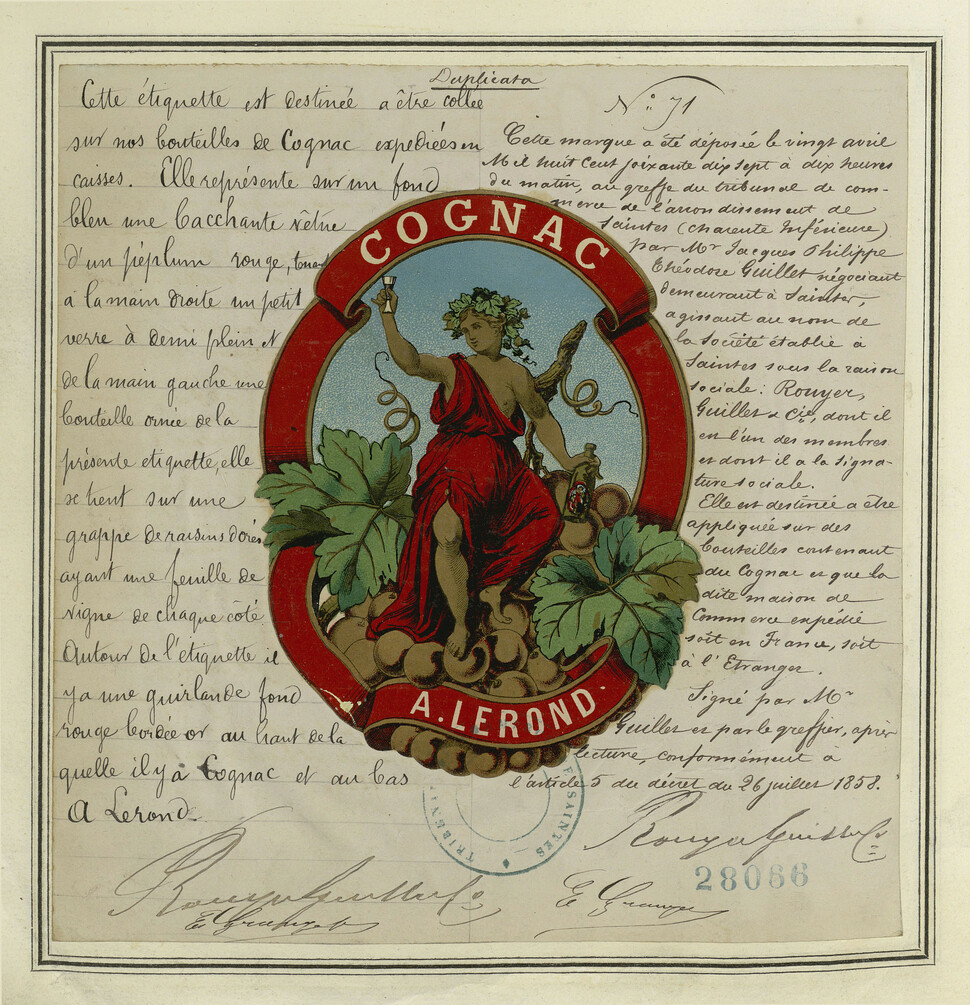 Duplicata
Cette étiquette est destinée a être collée
sur nos bouteilles de Cognac expediées en
caisses. Elle représente sur un fond
bleu une bacchante vêtue
d'un péplum rouge, tenant
à la main droite un petit
verre à demi plein et
de la main gauche une
bouteille ornée de la
présente etiquette, elle
se tient sur une
grappe de raisins dorés
ayant une feuille de
vigne de chaque côté
Autour de l'étiquette il
y a une guirlande fond
rouge bordée or au haut de la
quelle il y a Cognac et au bas
A Lerond.
N° 71
Cette marque a été déposée le vingt avril
Mil huit cent soixante dix sept à dix heures
du matin, au greffe du tribunal de com-
merce de l'arrondissement de
Saintes (Charente Inférieure)
par Mr Jacques Philippe
Théodore Guillet négociant
demeurant à Saintes,
agissant au nom de
la Société établie à
Saintes sous la raison
sociale: Rouyer,
Guillet & Cie, dont il
est l'un des membres
et dont il a la signa-
ture sociale.
Elle est destinée a être
appliquée sur des
bouteilles contenant
du Cognac et que la
dite maison de
Commerce expédie
soit en France, soit
à l'Etranger.
Signé par Mr
Guillet et par le greffier, après
lecture, conformément à
l'article 5 du décret du 26 juillet 1858.
COGNAC
A. LEROND.
SAINTES
Rouyer Guillet & Co
Rouyer Guillet & Co
28066